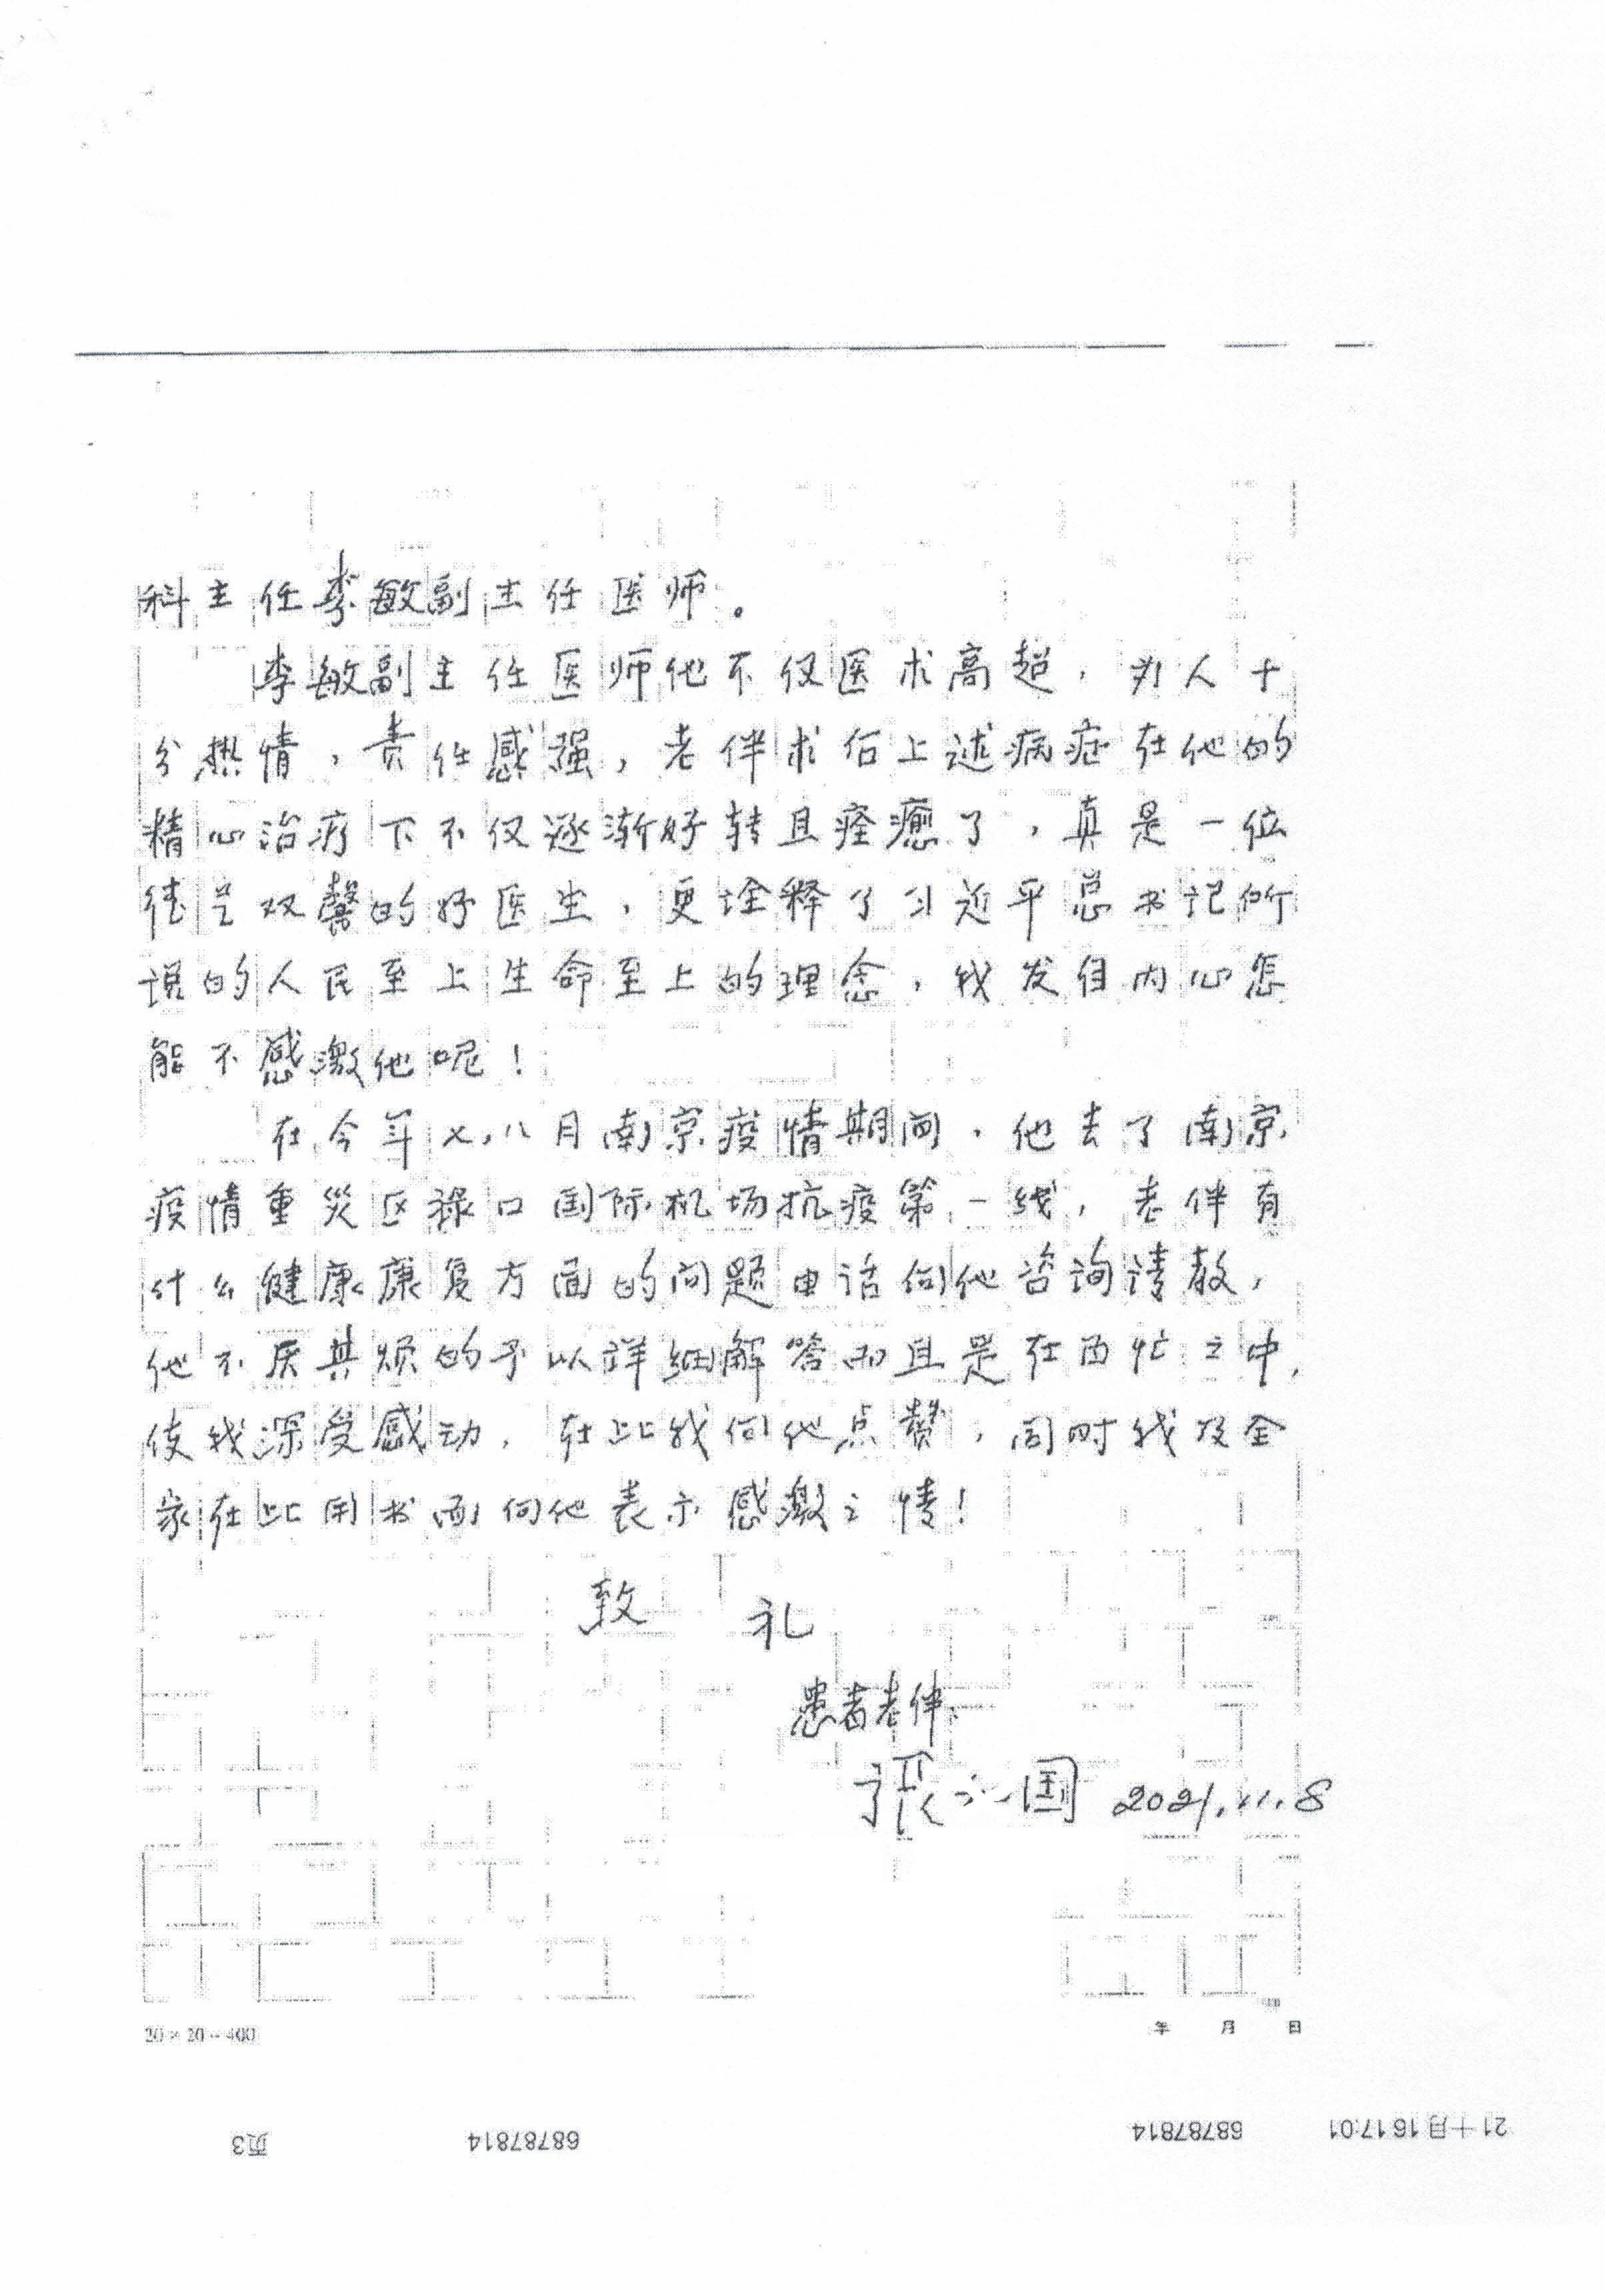 科主任李敏副主任医师。
李敏副主任医师他不仅医术高超，为人十
分热情，责任感强，老伴术后上述病症在他的
精心治疗下不仅逐渐好转且痊癒了，真是一位
德艺双馨的好医生，更诠释了习近平总书记所
说的人民至上生命至上的理念，我发自内心怎
能不感激他呢！
在今年七,八月南京疫情期间，他去了南京
疫情重災区禄口国际机场抗疫第一线，老伴有
什么健康康复方面的问题电话向他咨询请教，
他不厌其烦的予以详细解答而且是在百忙之中，
使我深受感动，在此我向他点赞，同时我及全
家在此用书面向他表示感激之情！
致 礼
患者老伴
张 国 2021.11.8
20×20=400
年 月 日
页3 68787814 68787814 21十一月16 17:01